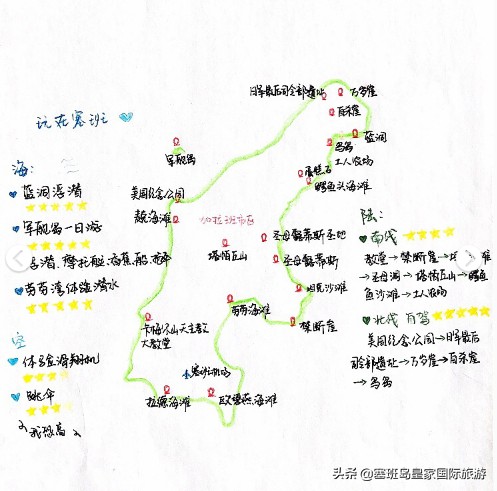 玩在塞班
海:
蓝洞浮潜
军舰岛一日游
浮潜、摩托艇、香蕉船、
劳劳湾体验潜水
空
体验海翔机
跳伞
我恐高
日军最后司令部遗址
万岁崖
自杀崖
蓝洞
鸟岛
土人农场
鳄鱼头海滩
军舰岛
美国纪念公园
加拉班市区
塔帕丘山
圣母
圣母
坦克沙滩
劳劳海滩
禁断崖
卡梅尔山天主教
大教堂
塞班机场
拉德海滩
欧碧燕海滩
陆:
南线
教堂→禁断崖→
→圣母洞→塔帕丘山→鳄鱼
鱼沙滩→土人农场
北线 自驾
美国纪念公园→日军最后
司令部遗址→万岁崖→自杀崖
→鸟岛
头条 @塞班岛皇家国际旅游